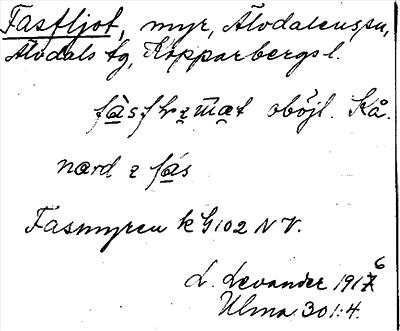 Fasfljot, myr, Älvdalens sn,
Älvdals tg, Kopparbergs l.
oböjl. Kå.
nærd i fás
Fäsmyren k G102 NV.
L. Levander 1916
Ulma 301:4.